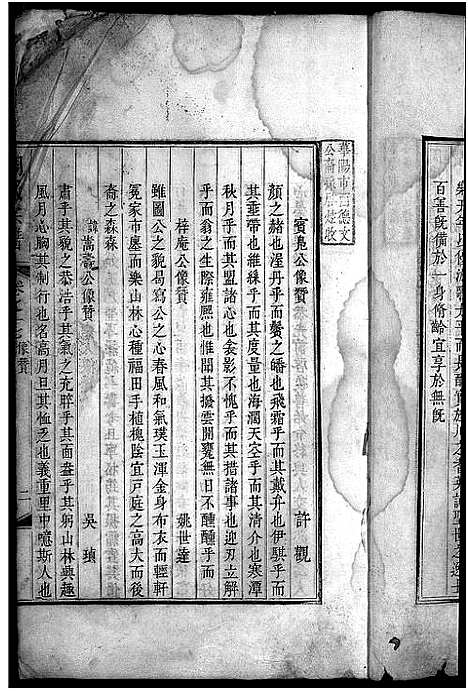 百善既備於一身脩齡宜享於無旣
賓鳧公像贊
許觀
顏之赭也渥丹乎而鬢之皤也飛霜乎而其戴升也伊騏乎而
其垂帶也維絲乎而其度量也海濶天空乎而其清介也寒潭
秋月乎而其盟諸心也衾影不愧乎而其措諸事也迎刃立解
乎而翁之生際雍熙也惟聞其撥雲開甕無日不醺醺乎而
梓庵公像贊
姚世達
雖圖公之貌曷寫公之心春風和氣璞玉渾金身布衣而輕軒
冕家市廛而樂山林心種福田手植槐陰宜戸庭之高大而後
裔之森森
諱嵩公像贊
吳瑱
肅乎其貌之恭浩乎其氣之充睟乎其面盎乎其躬山林興趣
風月心胸其制行也名高月旦其恤乏也義重里中噫斯人也
像贊